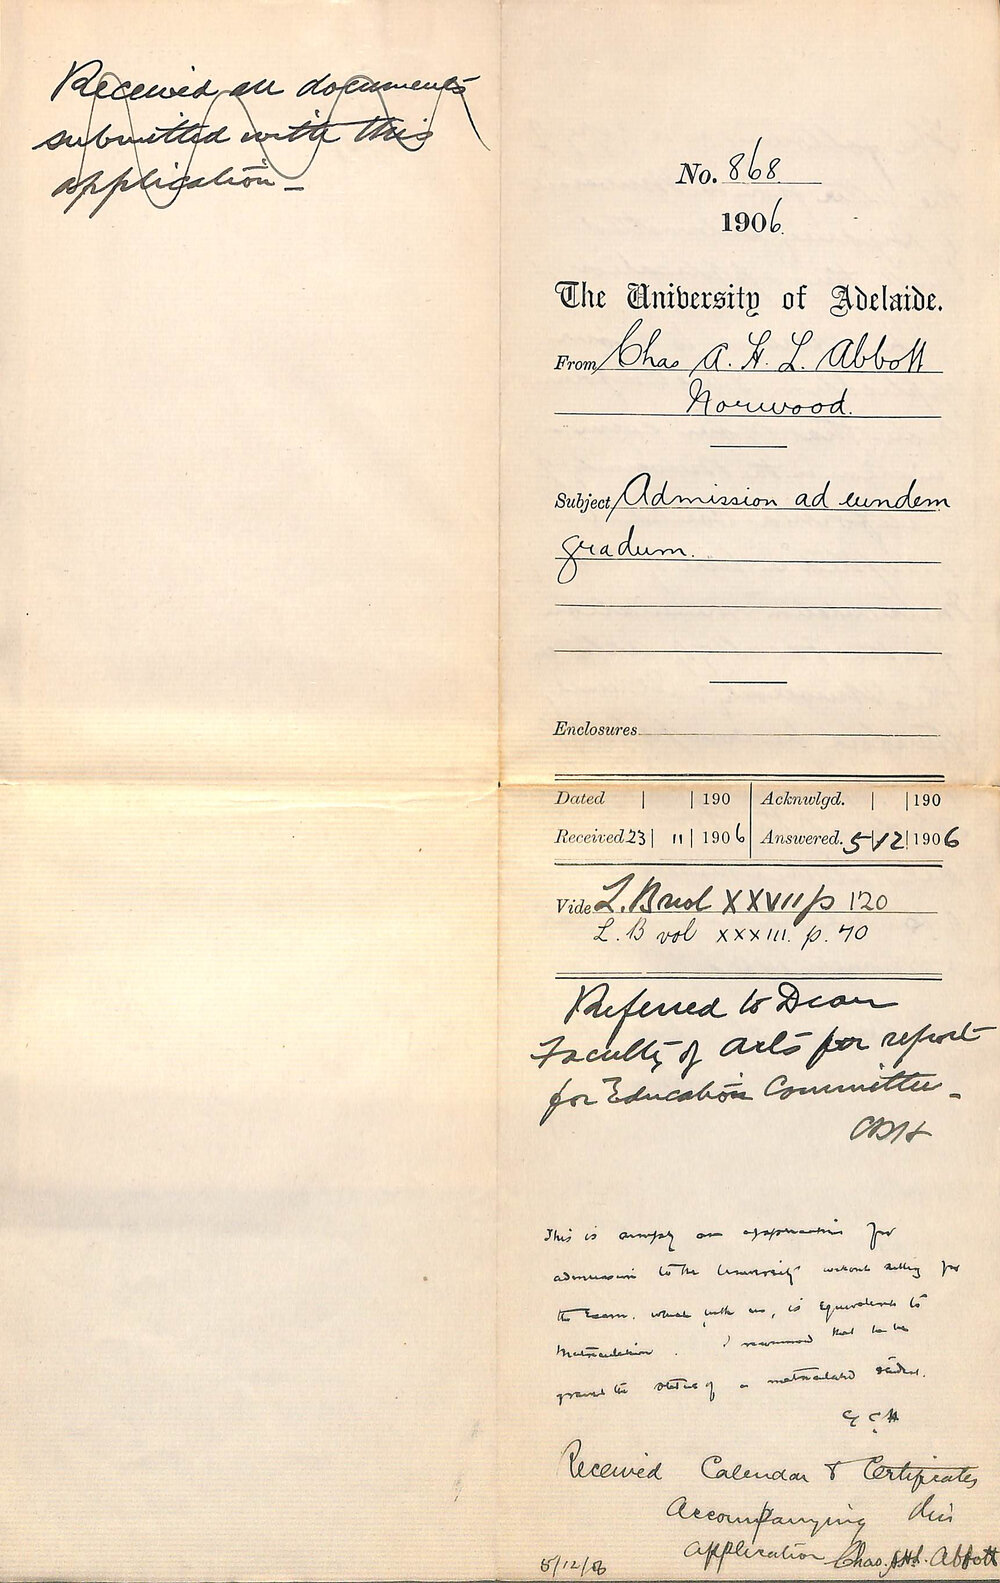 Received all documents
submitted with this
application –
No. 868.
1906.
The University of Adelaide.
From Chas A. H. L. Abbott
Norwood.
Subject Admission ad eundem
gradum.
Enclosures
Dated | | 190 | Acknwlgd. | | 190
Received 23 | 11 | 1906 | Answered. 5 | 12 | 1906
Vide L. B vol XXVII p 120
L. B vol XXXIII. p. 70
Referred to Dean
Faculty of Arts for report
for Education Committee –
CRH
This is simply an application for
admission to the University without sitting for
the Exam. which with us, is equivalent to
Matriculation. I recommend that he be
granted the status of a matriculated student.
Received Calendar & Certificates
Accompanying this
application Chas. A.H.L. Abbott
5/12/06